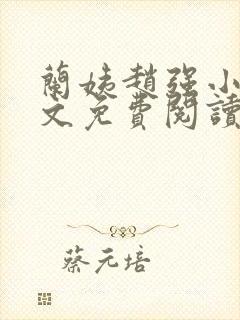 蘭姨趙强小
文免費閱讀
蔡元培